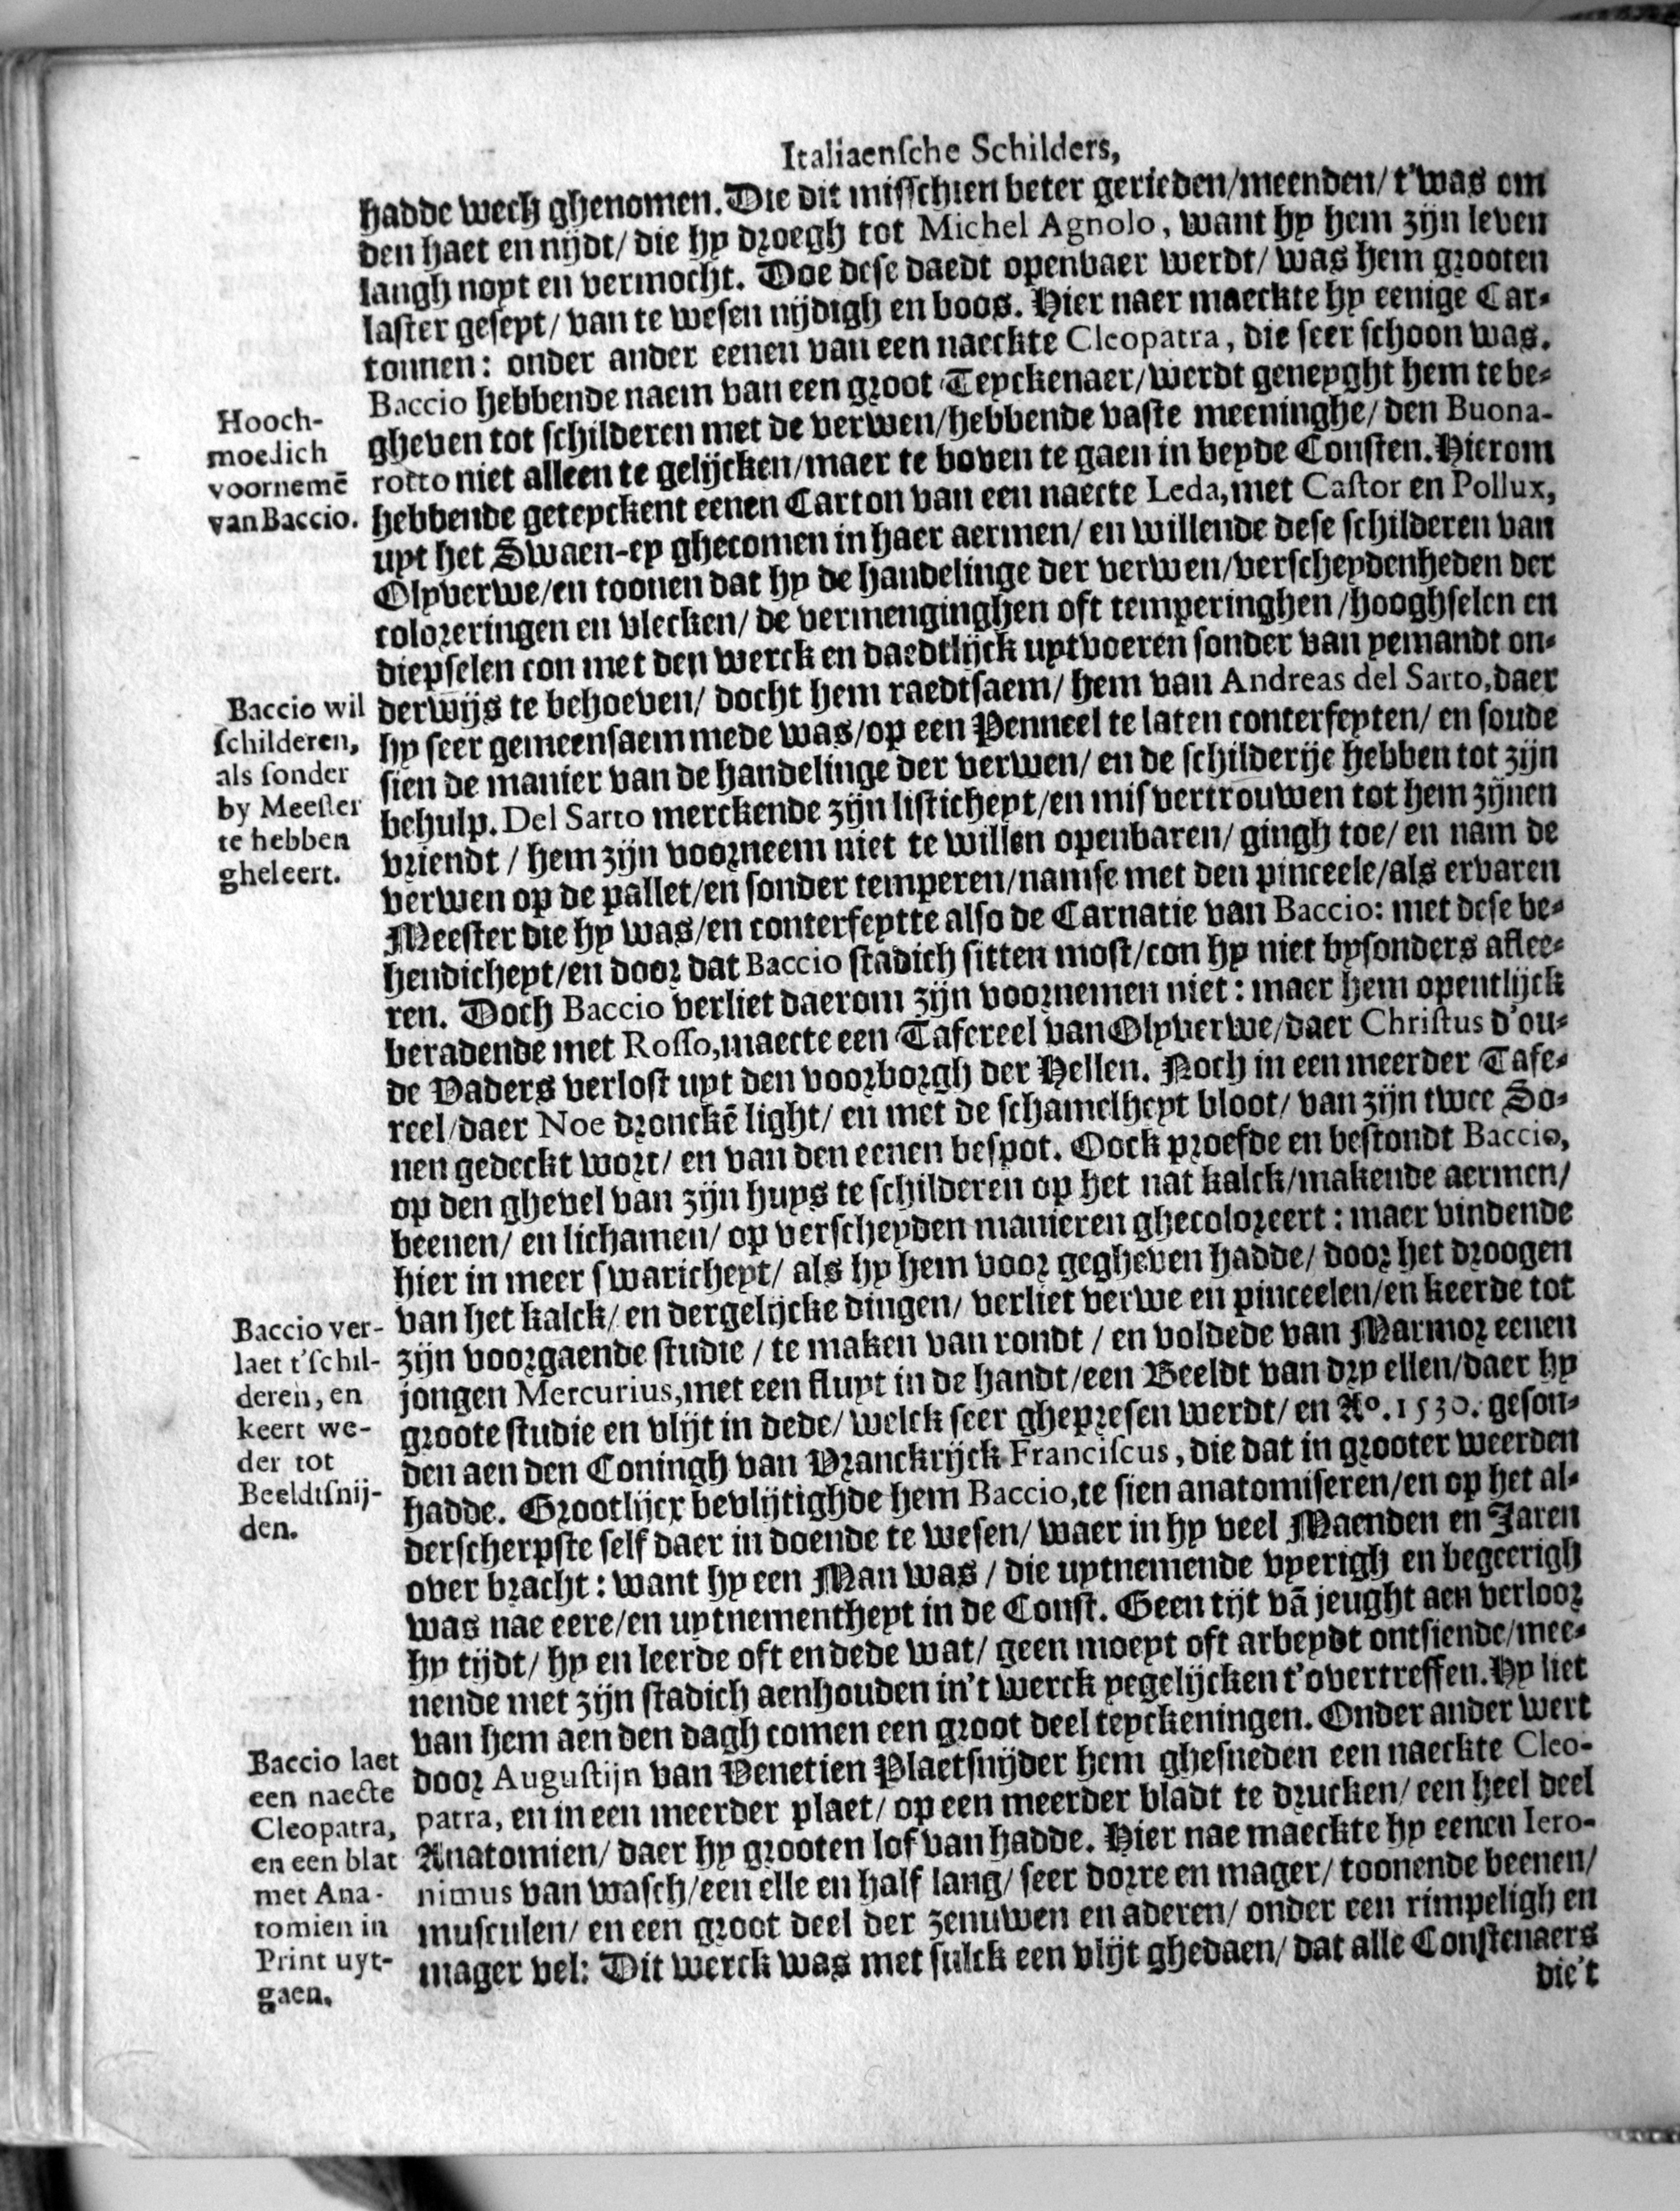 Italiaensche Schilders,
hadde wech ghenomen. Die dit misschien beter gerieden/meenden/t'was om
den haet en nijdt/ die hy droegh tot Michel Agnolo, want hy hem zijn leven
langh noyt en vermocht. Doe dese daedt openbaer werdt/ was hem grooten
laster geseyt/ van te wesen nijdigh en boos. Hier naer maeckte hy eenige Car-
tonnen: onder ander eenen van een naeckte Cleopatra, die seer schoon was.
Baccio hebbende naem van een groot Teyckenaer/werdt geneyght hem te be-
gheven tot schilderen met de verwen/hebbende vaste meeninghe/ den Buona-
rotto niet alleen te gelijcken/maer te boven te gaen in beyde Consten. Hierom
hebbende geteyckent eenen Carton van een naecte Leda, met Castor en Pollux,
uyt het Swaen-ey ghecomen in haer aermen/ en willende dese schilderen van
Olyverwe/en toonen dat hy de handelinge der verwen/verscheydenheden der
coloreringen en vlecken/ de vermenginghen oft temperinghen/hooghselen en
diepselen con met den werck en daedtlijck uytvoeren sonder van yemandt on-
derwijs te behoeven/ docht hem raedtsaem/ hem van Andreas del Sarto, daer
hy seer gemeensaem mede was/op een Penneel te laten conterfeyten/ en soude
sien de manier van de handelinge der verwen/ en de schilderije hebben tot zijn
behulp. Del Sarto merckende zijn listicheyt/en misvertrouwen tot hem zijnen
vriendt/ hem zijn voorneem niet te willen openbaren/ gingh toe/ en nam de
verwen op de pallet/en sonder temperen/namse met den pinceele/als ervaren
Meester die hy was/en conterfeytte also de Carnatie van Baccio: met dese be-
hendicheyt/en door dat Baccio stadich sitten most/con hy niet bysonders aflee-
ren. Doch Baccio verliet daerom zijn voornemen niet: maer hem opentlijck
beradende met Rosso, maecte een Tafereel van Olyverwe/daer Christus d'ou-
de Vaders verlost uyt den voorborgh der Hellen. Noch in een meerder Tafe-
reel/daer Noe dronckē light/ en met de schamelheyt bloot/ van zijn twee So-
nen gedeckt wort/ en van den eenen bespot. Oock proefde en bestondt Baccio,
op den ghevel van zijn huys te schilderen op het nat kalck/makende aermen/
beenen/ en lichamen/ op verscheyden manieren ghecoloreert: maer vindende
hier in meer swaricheyt/ als hy hem voor gegheven hadde/ door het droogen
van het kalck/ en dergelijcke dingen/ verliet verwe en pinceelen/en keerde tot
zijn voorgaende studie/ te maken van rondt/ en voldede van Marmor eenen
jongen Mercurius, met een fluyt in de handt/een Beeldt van dry ellen/daer hy
groote studie en vlijt in dede/ welck seer ghepresen werdt/ en Aº. 1530. geson-
den aen den Coningh van Vranckrijck Franciscus, die dat in grooter weerden
hadde. Grootlijcx bevlijtighde hem Baccio, te sien anatomiseren/en op het al-
derscherpste self daer in doende te wesen/ waer in hy veel Maenden en Jaren
over bracht: want hy een Man was/ die uytnemende vyerigh en begeerigh
was nae eere/en uytnementheyt in de Const. Geen tijt vā jeught aen verloor
hy tijdt/ hy en leerde oft en dede wat/ geen moeyt oft arbeydt ontsiende/mee-
nende met zijn stadich aenhouden in't werck yegelijcken t'overtreffen. Hy liet
van hem aen den dagh comen een groot deel teyckeningen. Onder ander wert
door Augustijn van Venetien Plaetsnijder hem ghesneden een naeckte Cleo-
patra, en in een meerder plaet/ op een meerder bladt te drucken/ een heel deel
Anatomien/ daer hy grooten lof van hadde. Hier nae maeckte hy eenen Iero-
nimus van wasch/een elle en half lang/ seer dorre en mager/ toonende beenen/
musculen/ en een groot deel der zenuwen en aderen/ onder een rimpeligh en
mager vel: Dit werck was met sulck een vlijt ghedaen/ dat alle Constenaers
die't
Hooch-
moedich
voornemē
van Baccio.
Baccio wil
schilderen,
als sonder
by Meester
te hebben
gheleert.
Baccio ver-
laet t'schil-
deren, en
keert we-
der tot
Beeldtsnij-
den.
Baccio laet
een naecte
Cleopatra,
en een blat
met Ana-
tomien in
Print uyt-
gaen.